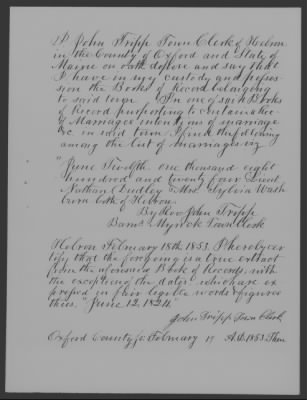 I John Tripp Town Clerk of Hebron
in the County of Oxford and State of
Maine on oath depose and say that
I have in my custody and posses-
sion the Books of Record belonging
to said town. In one of said Books
of Record purporting to contain a
of Marriages intentions of marriage
&c in said town I find the following
among the list of marriages viz
"June Twelfth one thousand eight
hundred and twenty four Lieut.
Nathan Dudley & Mrs. Sylvia Wash
burn both of Hebron.
By Rev. John Tripp
Barna. Myrick Town Clerk
Hebron February 18th 1853. I hereby cer
tify that the foregoing is a true extract
from the aforesaid Book of Records, with
the exception of the date which are ex
pressed in plain legible words & figures
thus. "June 12, 1824."
John Tripp Town Clerk
Oxford County ss February 19 A.D. 1853 Then